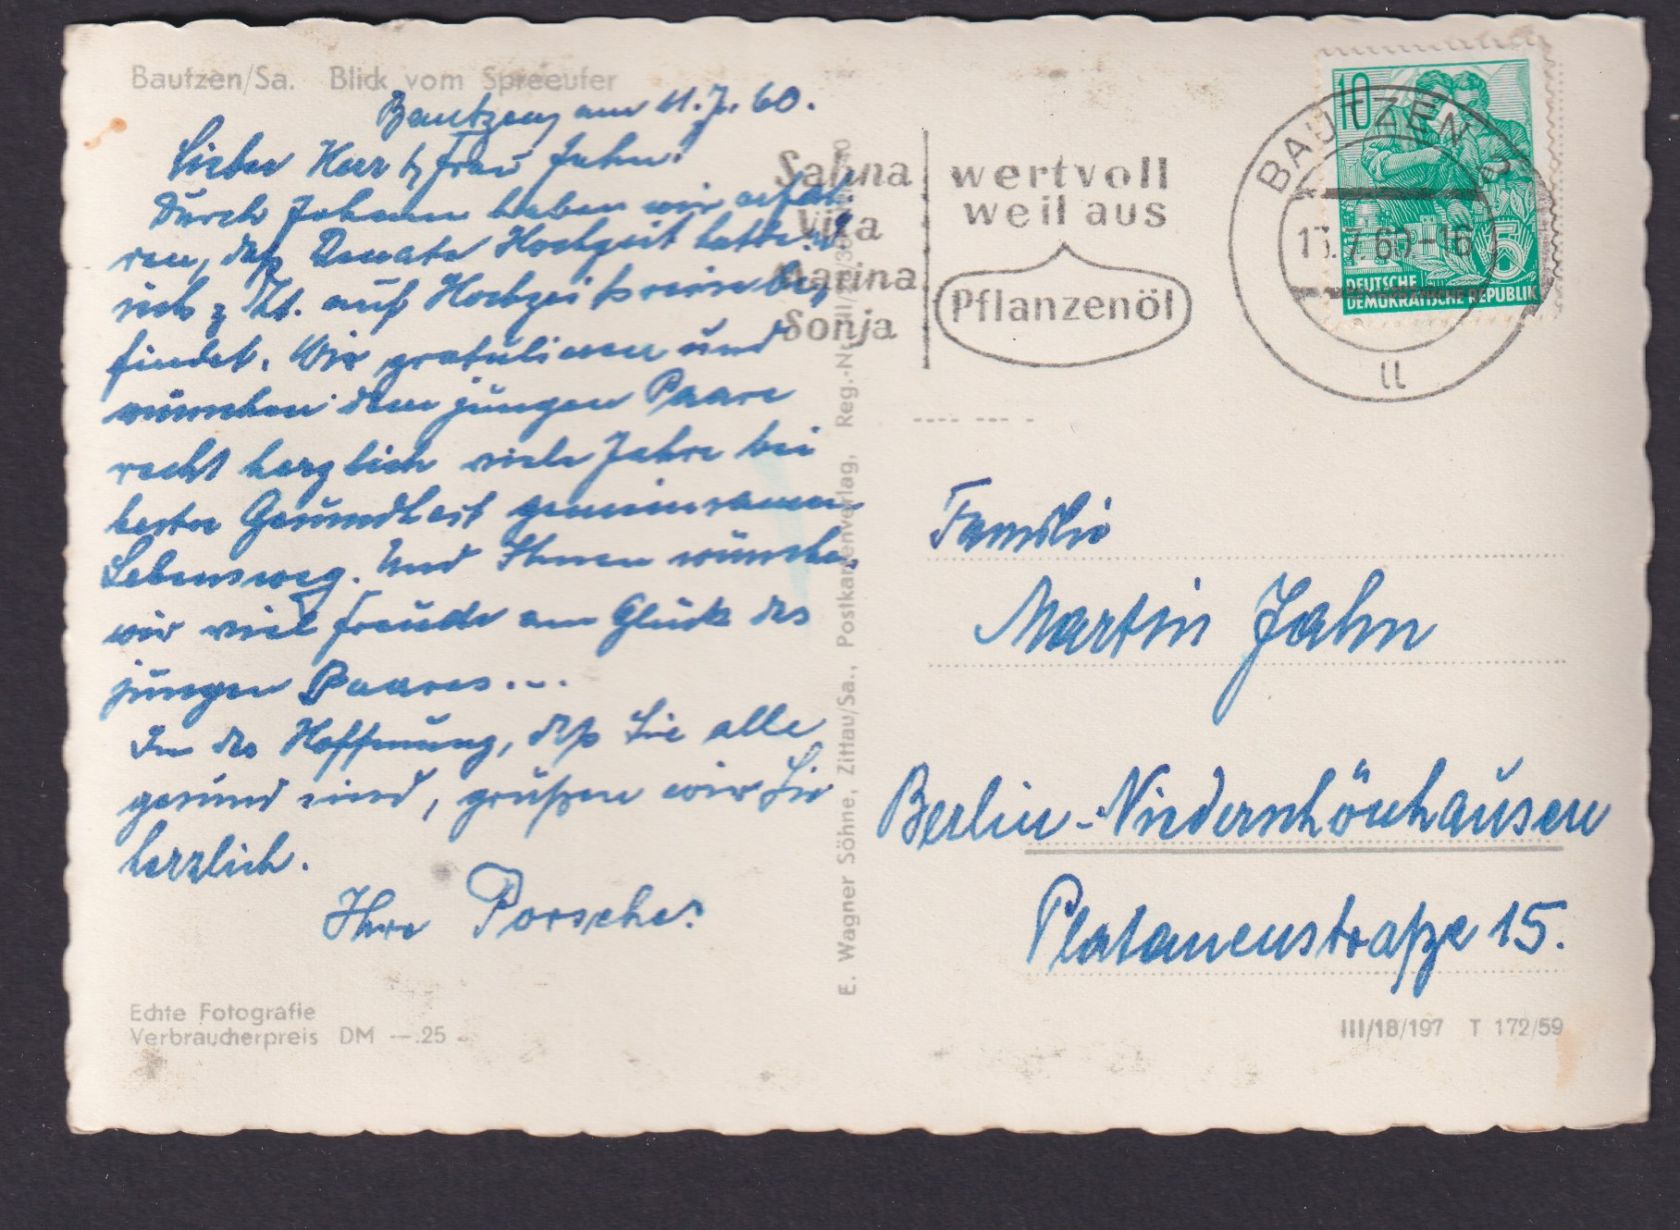 Bautzen/Sa. Blick vom Spreeufer
Bautzen, am 11.7.60.
Lieber Herr u. Frau Jahn!
Durch Johann haben wir erfah-
ren, daß Renate Hochzeit hatte u.
sich z. Zt. auf Hochzeitsreise be-
findet. Wir gratulieren und
wünschen dem jungen Paare
recht herzlich viele Jahre bei
bester Gesundheit gemeinsamen
Lebensweg. Und Ihnen wünschen
wir viel Freude am Glück des
jungen Paares...
In der Hoffnung, daß Sie alle
gesund sind, grüßen wir Sie
herzlich.
Ihre Porsches
Echte Fotografie
Verbraucherpreis DM —.25
E. Wagner Söhne, Zittau/Sa., Postkartenverlag, Reg.-Nr.
Sahna
Vita
Marina
Sonja
wertvoll
weil aus
Pflanzenöl
BAUTZEN 2
13.7.60-16
u
10
5
DEUTSCHE
DEMOKRATISCHE REPUBLIK
Familie
Martin Jahn
Berlin-Niederschönhausen
Platanenstraße 15.
III/18/197 T 172/59